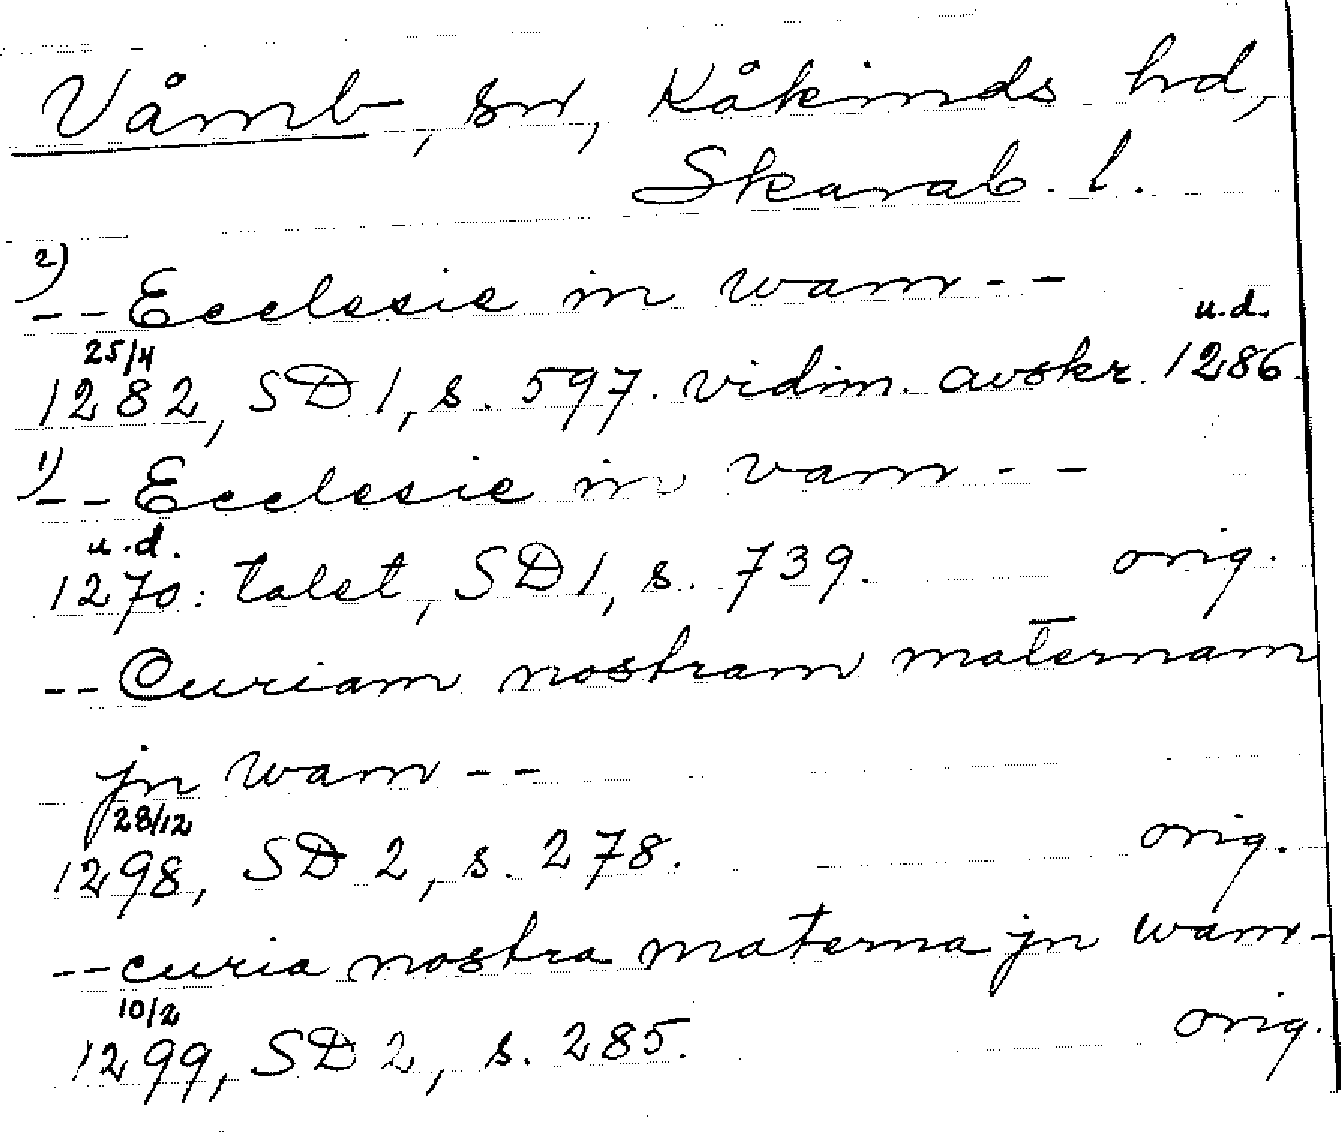 Våmb, sn, Kåkinds hd,
Skarab. l.
2)
-- Ecclesie in wam --
25/4 u.d.
1282, SD 1, s. 597. vidim. avskr. 1286.
1)
-- Ecclesie in vam --
u.d.
1270: talet, SD 1, s. 739. orig.
-- Curiam nostram maternam
jn wam --
28/12
1298, SD 2, s. 278. orig.
-- curia nostra materna jn wam -
10/2
1299, SD 2, s. 285. orig.